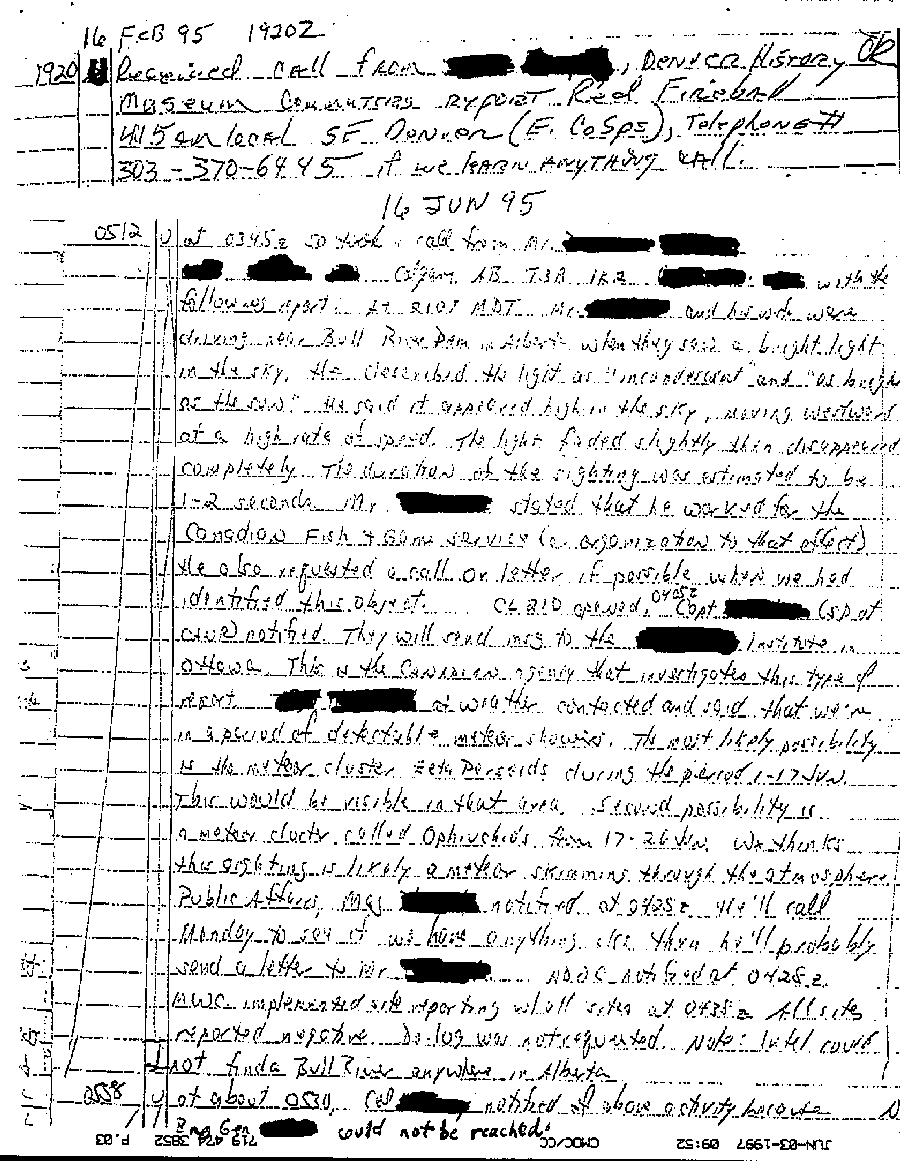 16 FEB 95 1920Z
1920 U Received call from , DENVER HISTORY
Museum Commuters REPORT Red Fireball
415am local SE Denver (E. CoSps), Telephone #
303-370-6445 if we LEARN ANYTHING CALL.
16 JUN 95
0512 U at 0345z SD took a call from Mr.
Calgary AB T3B 1K2 with the
following report: At 2107 MDT Mr. and his wife were
driving near Bull River Dam in Alberta when they saw a bright light
in the sky. He described the light as "incandescent" and "as bright
as the sun" He said it appeared high in the sky, moving westward
at a high rate of speed. The light faded slightly then disappeared
completely. The duration of the sighting was estimated to be
1-2 seconds Mr. stated that he worked for the
Canadian Fish & Game Service (or organization to that effect)
He also requested a call or letter if possible when we had
identified this object. CL 210 opened, 0405z Capt (sp at
) notified. They will send msg to the Institute in
Ottawa. This is the Canadian agency that investigates this type of
report at weather contacted and said that we're
in a period of detectable meteor showers. The most likely possibility
is the meteor cluster Zeta Perseids during the period 1-17 Jun.
This would be visible in that area. Second possibility is
a meteor clustr called Ophiuchids from 17-26 Jun. Wx thinks
this sighting is likely a meteor skimming through the atmosphere
Public Affairs, Maj notified at 0425z He'll call
Monday to see if we have anything else then he'll probably
send a letter to Mr NDOC notified at 0428z
MWC implemented site reporting w/all sites at 0438z All sites
reported negative. De-log was not requested. Note: Intel could
not find a Bull River anywhere in Alberta
2558 U at about 0530, Col notified of above activity because
Brig Gen could not be reached.
JUN-03-1997 09:52 CMOC/CC 719 474 3852 P.03